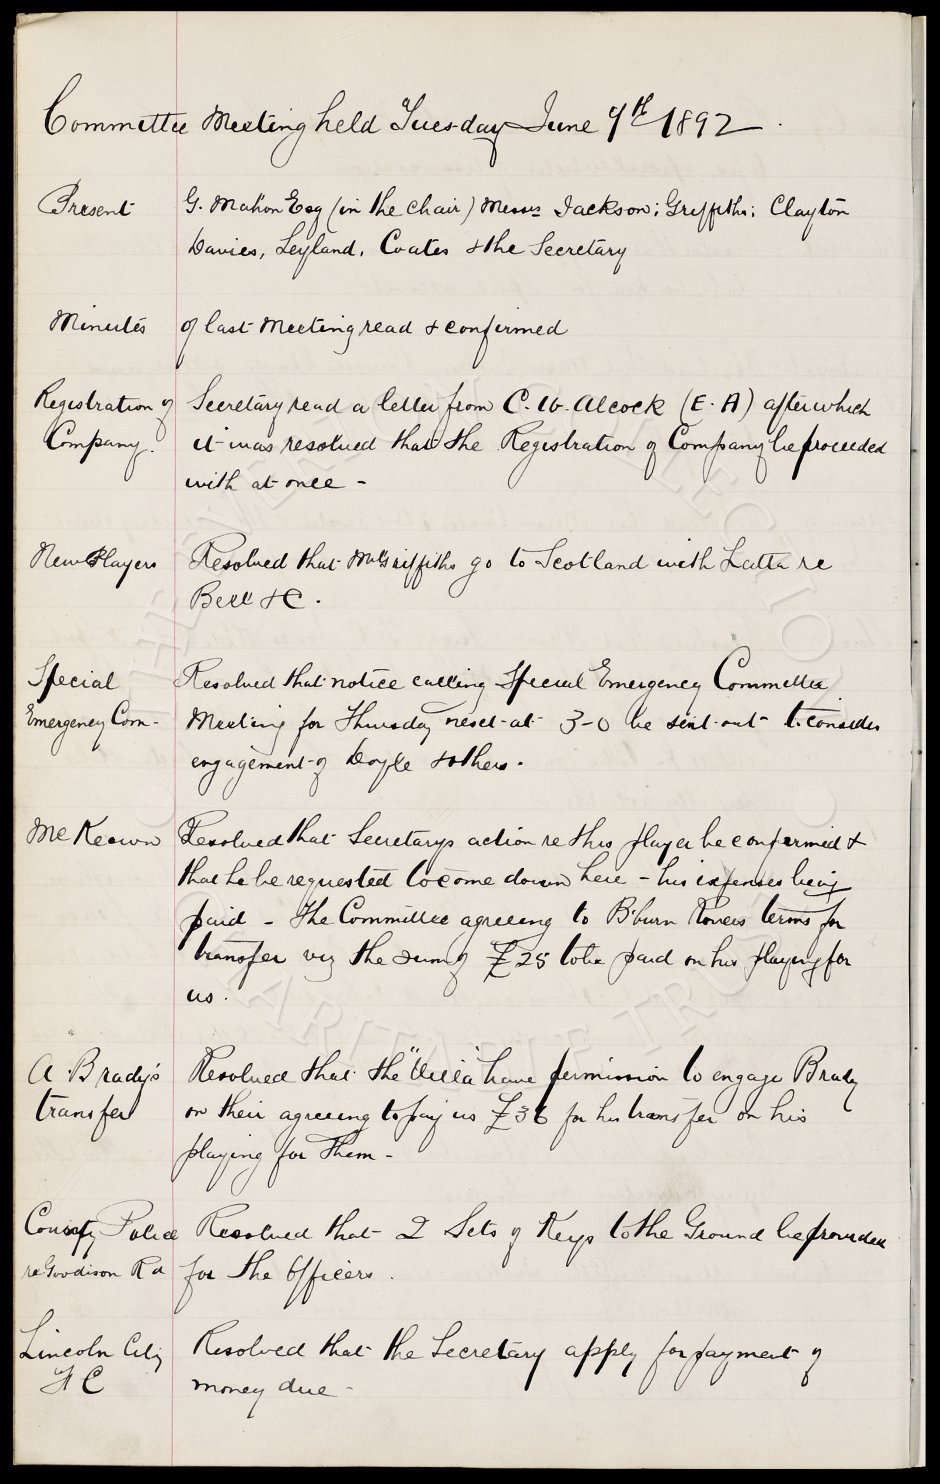 Committee Meeting held Tuesday June 7th 1892
Present G. Mahon Esq (in the chair) Messrs Jackson; Griffiths; Clayton
Davies, Leyland, Coates & the Secretary
Minutes of last Meeting read & confirmed
Registration of Secretary read a letter from C. W. Alcock (E. A) after which
Company. it was resolved that the Registration of Company be proceeded
with at once -
New Players Resolved that Mr Griffiths go to Scotland with Latta re
Bell &c.
Special Resolved that notice calling Special Emergency Committee
Emergency Com- Meeting for Thursday next at 3-0 be sent out to consider
engagement of Doyle & others.
McKeown Resolved that Secretarys action re this player be confirmed &
that he be requested to come down here - his expenses being
paid - The Committee agreeing to B'burn Rovers terms for
transfer viz the sum of £25 to be paid on his playing for
us.
A. Brady's Resolved that the "Villa" have permission to engage Brady
transfer on their agreeing to pay us £36 for his transfer on his
playing for them -
County Police Resolved that 2 Sets of Keys to the Ground be provided
re Goodison Rd for the Officers.
Lincoln City Resolved that the Secretary apply for payment of
F C money due -